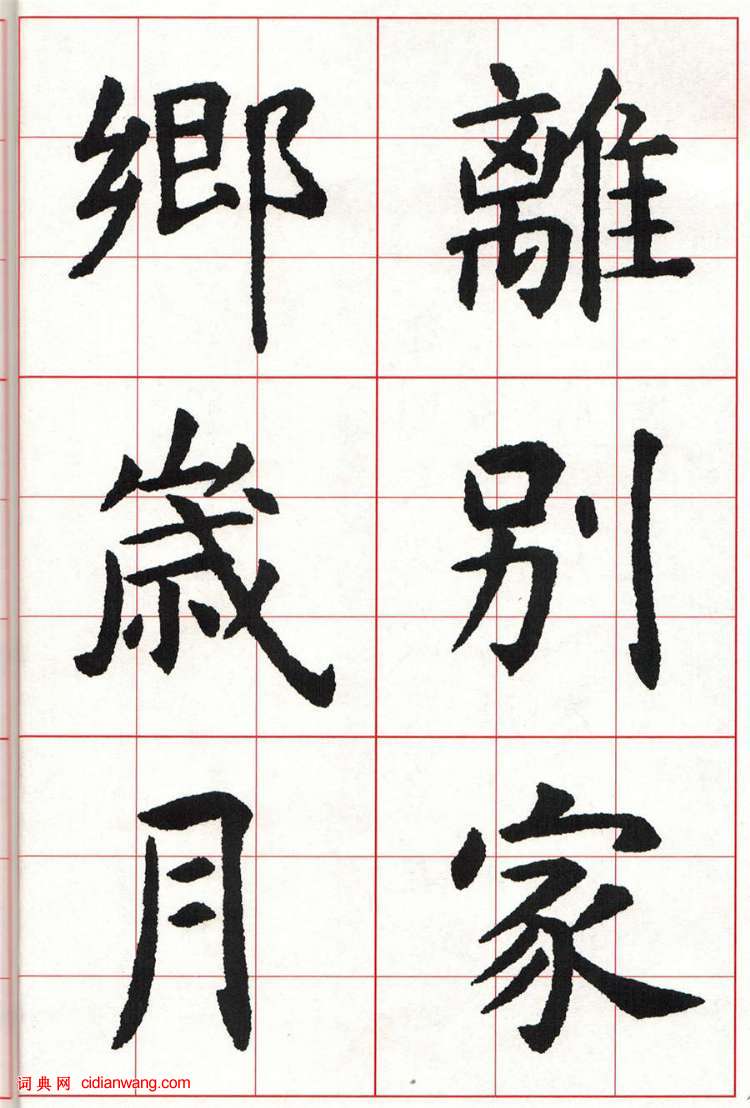 離別家
鄉歲月
词典网 cidianwang.com